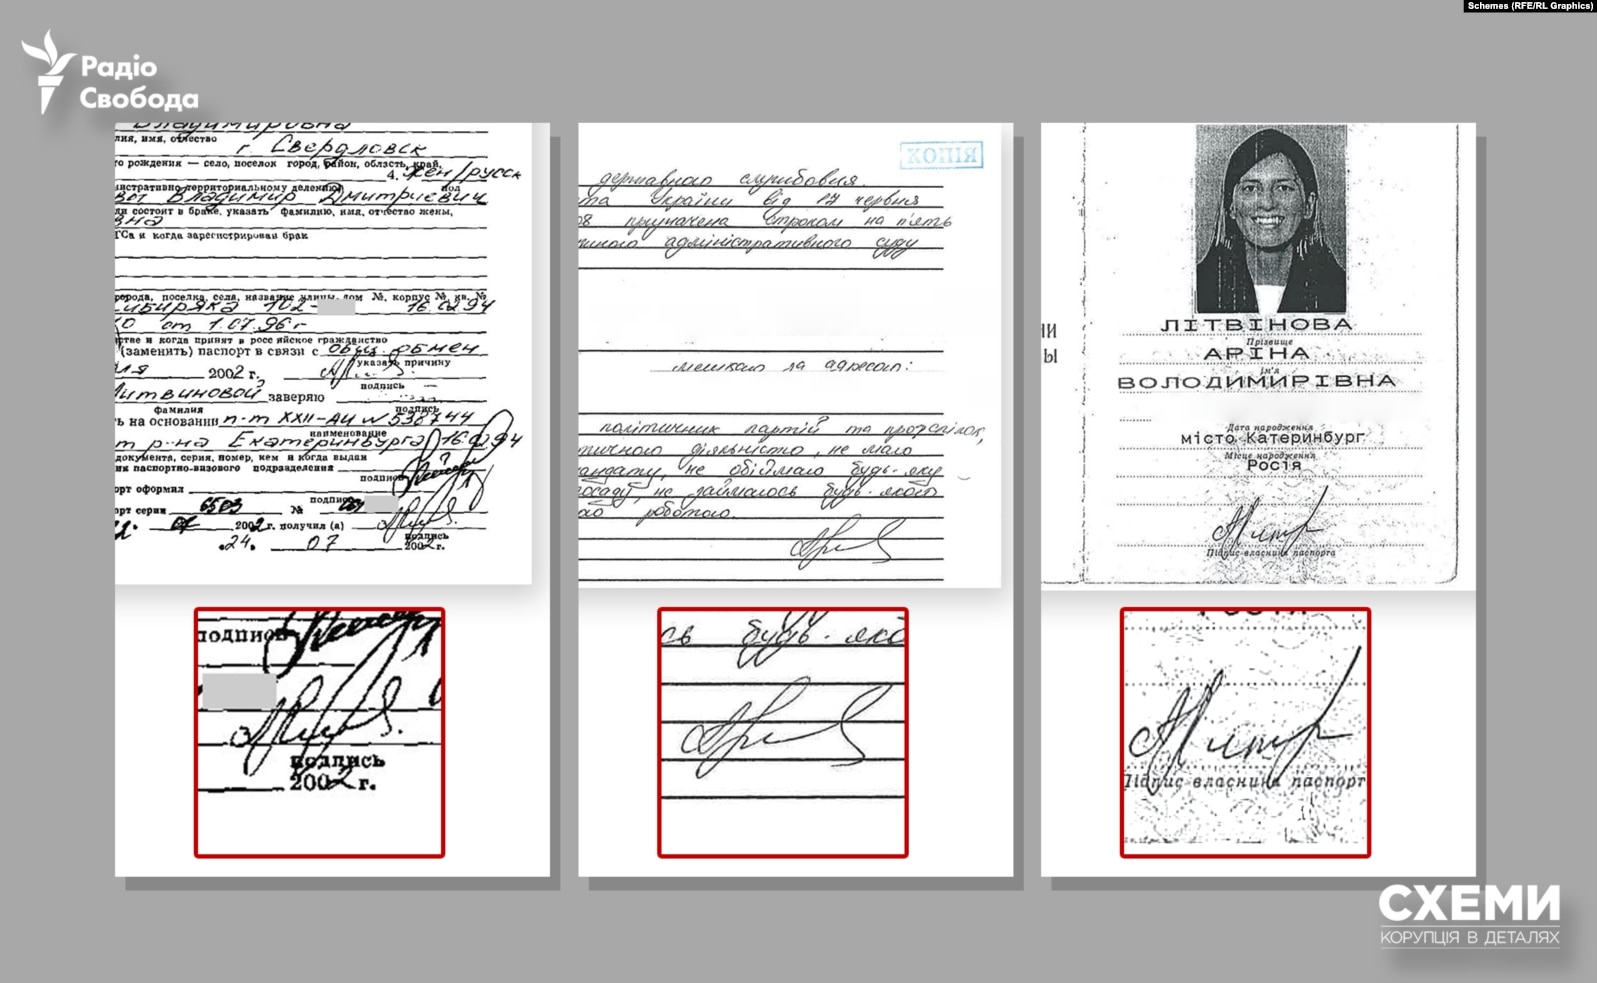 Schemes (RFE/RL Graphics)
Радіо
Свобода
Владимировна
лия, имя, отчество
г. Свердловск
го рождения — село, поселок город, район, область, край,
4. жен/русск
нистративно-территориальному делению) пол
Владимир Дмитриевич
ли состоит в браке, указать фамилию, имя, отчество жены,
вна
ГСа и когда зарегистрирован брак
города, поселка, села, название улицы, дом №, корпус №, кв. №
сибиряка 102- 16.02.94
от 1.07.96 г
стве и когда принят в российское гражданство
(заменить) паспорт в связи с общ. обмен
указать причину
2002 г.
подпись
Литвиновой заверяю
фамилия подпись
ь на основании п-т XXII-АИ № 538744
наименование
т р-на Екатеринбурга 16.02.94
документа, серия, номер, кем и когда выдан
ик паспортно-визового подразделения
подпись
орт оформил
подпись
орт серии 6503 №
07 2002 г. получил (а)
подпись
24. 07 2002 г.
КОПІЯ
державного службовця.
та України від 17 червня
8 призначена строком на п'ять
адміністративного суду
мешкаю за адресою:
політичних партій та профспілок,
діяльністю, не маю
мандату, не обіймаю будь-яку
посаду, не займаюсь будь-якою
роботою.
НИ
Ы
ЛІТВІНОВА
Прізвище
АРІНА
Ім'я
ВОЛОДИМИРІВНА
Дата народження
місто Катеринбург
Місце народження
Росія
Підпис власника паспорта
подпись
подпись
2002 г.
сь будь-яко
Росія
Підпис власника паспорт
СХЕМИ
КОРУПЦІЯ В ДЕТАЛЯХ